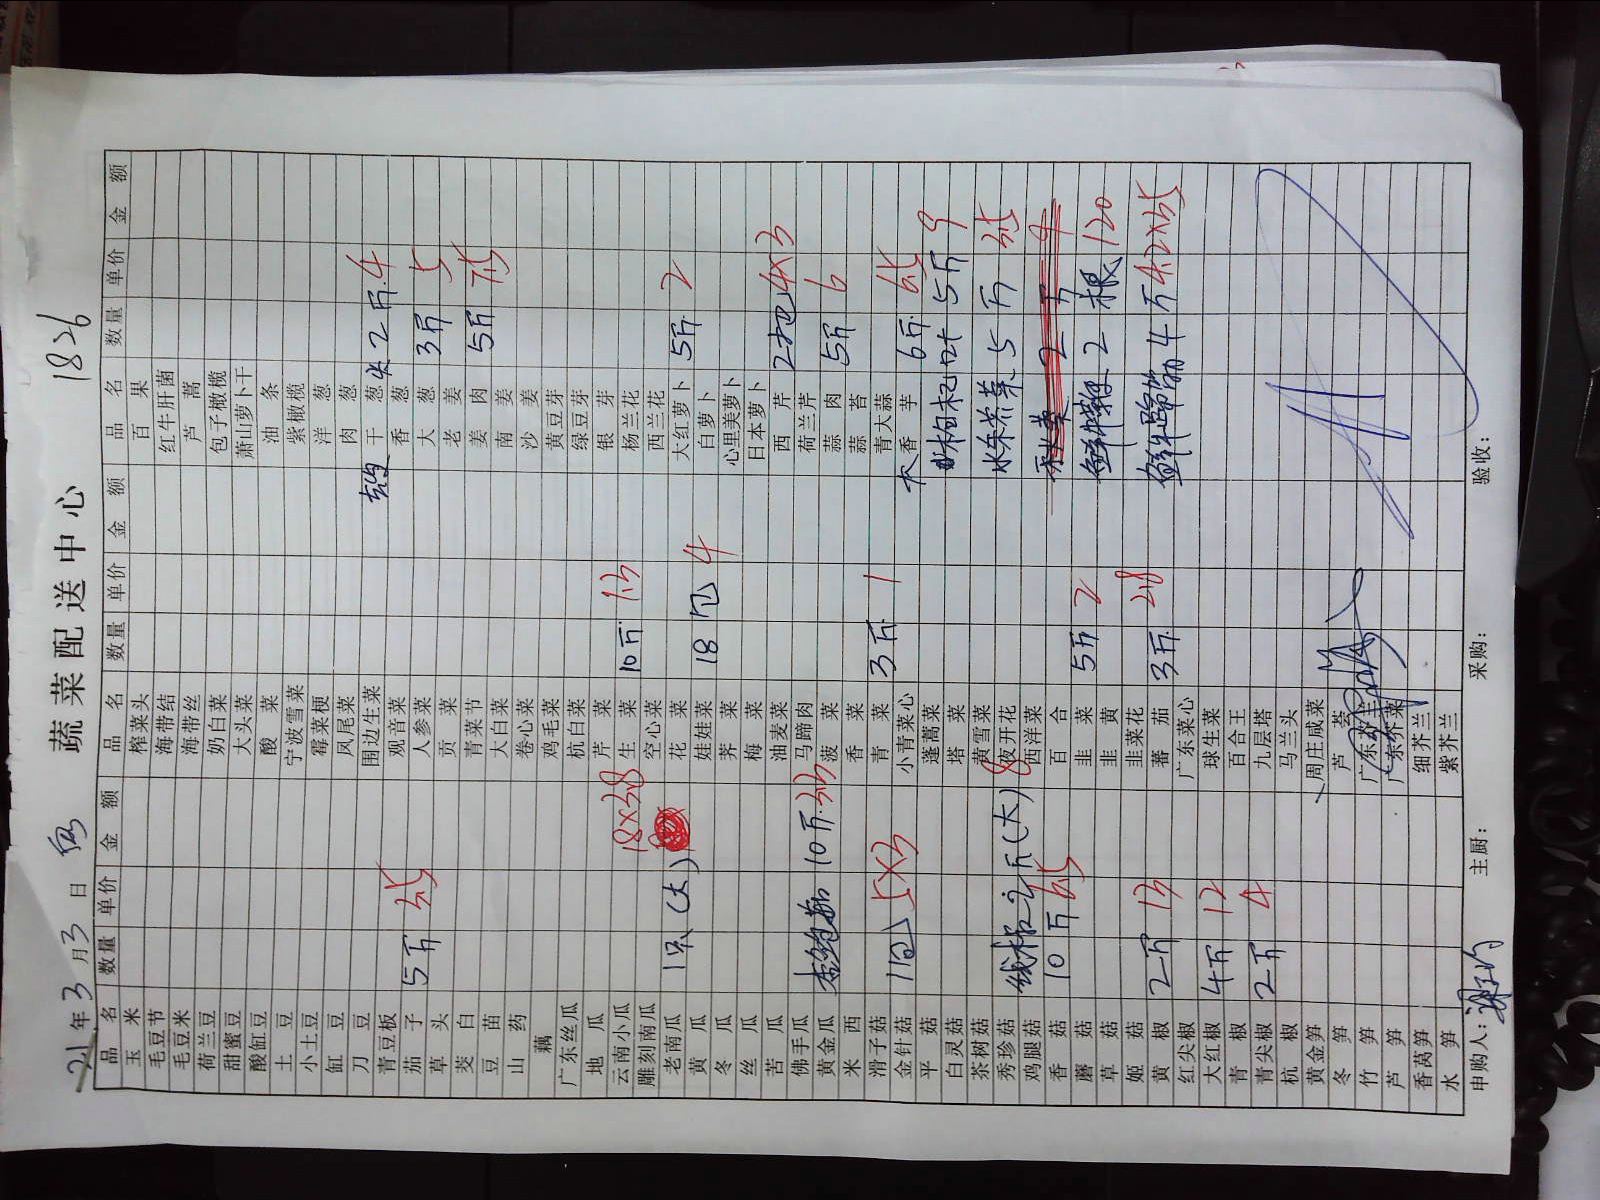 蔬菜配送中心 1826
21年3月3日
品名 数量 单价 金额 品名 数量 单价 金额 品名 数量 单价 金额
玉米 榨菜头 百果
毛豆节 海带结 红牛肝菌
毛豆米 海带丝 芦蒿
荷兰豆 奶白菜 包子橄榄
甜蜜豆 大头菜 萧山萝卜干
酸缸豆 酸菜 油条
土豆 宁波雪菜 紫橄榄
小土豆 霉菜梗 洋葱
缸豆 凤尾菜 肉葱
刀豆 围边生菜 干葱 2斤 4
青豆板 观音菜 香葱
茄子 5斤 3.5 人参菜 大葱 3斤 5
草头 贡菜 老姜
茭白 青菜节 姜肉 5斤 7.5
豆苗 大白菜 南姜
山药 卷心菜 沙姜
藕 鸡毛菜 黄豆芽
广东丝瓜 杭白菜 绿豆芽
地瓜 芹菜 银芽
云南小瓜 18×3.8 生菜 10斤 1.5 杨兰花
雕刻南瓜 空心菜 西兰花
老南瓜 1只(大) 花菜 大红萝卜 5斤 2
黄瓜 娃娃菜 18包 4 白萝卜
冬瓜 荠菜 心里美萝卜
丝瓜 梅菜 日本萝卜
苦瓜 油麦菜 西芹 2把 4×3
佛手瓜 马蹄肉 荷兰芹
黄金瓜 杏鲍菇 10斤 3.5 菠菜 蒜肉 5斤 6
米西 香菜 蒜苔
滑子菇 青菜 3斤 1 青大蒜
金针菇 11包 5×3 小青菜心 大香芋 6斤 6.5
平菇 蓬蒿菜
白灵菇 塔菜 枸杞叶 5斤 9
茶树菇 黄雪菜
秀珍菇 线椒 2斤(大) 8 夜开花 芥菜 5斤 3.5
鸡腿菇 西洋菜
香菇 10斤 6.5 百合 2斤 9
蘑菇 韭菜 5斤 2
草菇 韭黄 2根 120
姬菇 韭菜花
黄椒 2斤 13 蕃茄 3斤 2.8 鲜牛蹄筋 4斤 4.2×35
红尖椒 广东菜心
大红椒 4斤 12 球生菜
青椒 百合王
青尖椒 2斤 4 九层塔
杭椒 马兰头
黄金笋 周庄咸菜
冬笋 芦荟
竹笋 广东芥兰
芦笋 广东芥菜
香莴笋 细芥兰
水笋 紫芥兰
申购人: 主厨: 采购: 验收: